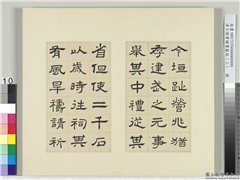 今垣趾營兆猶
存建武之元事
舉其中禮從其
省但使二千石
以歲時往祠其
有風旱禱請祈
10